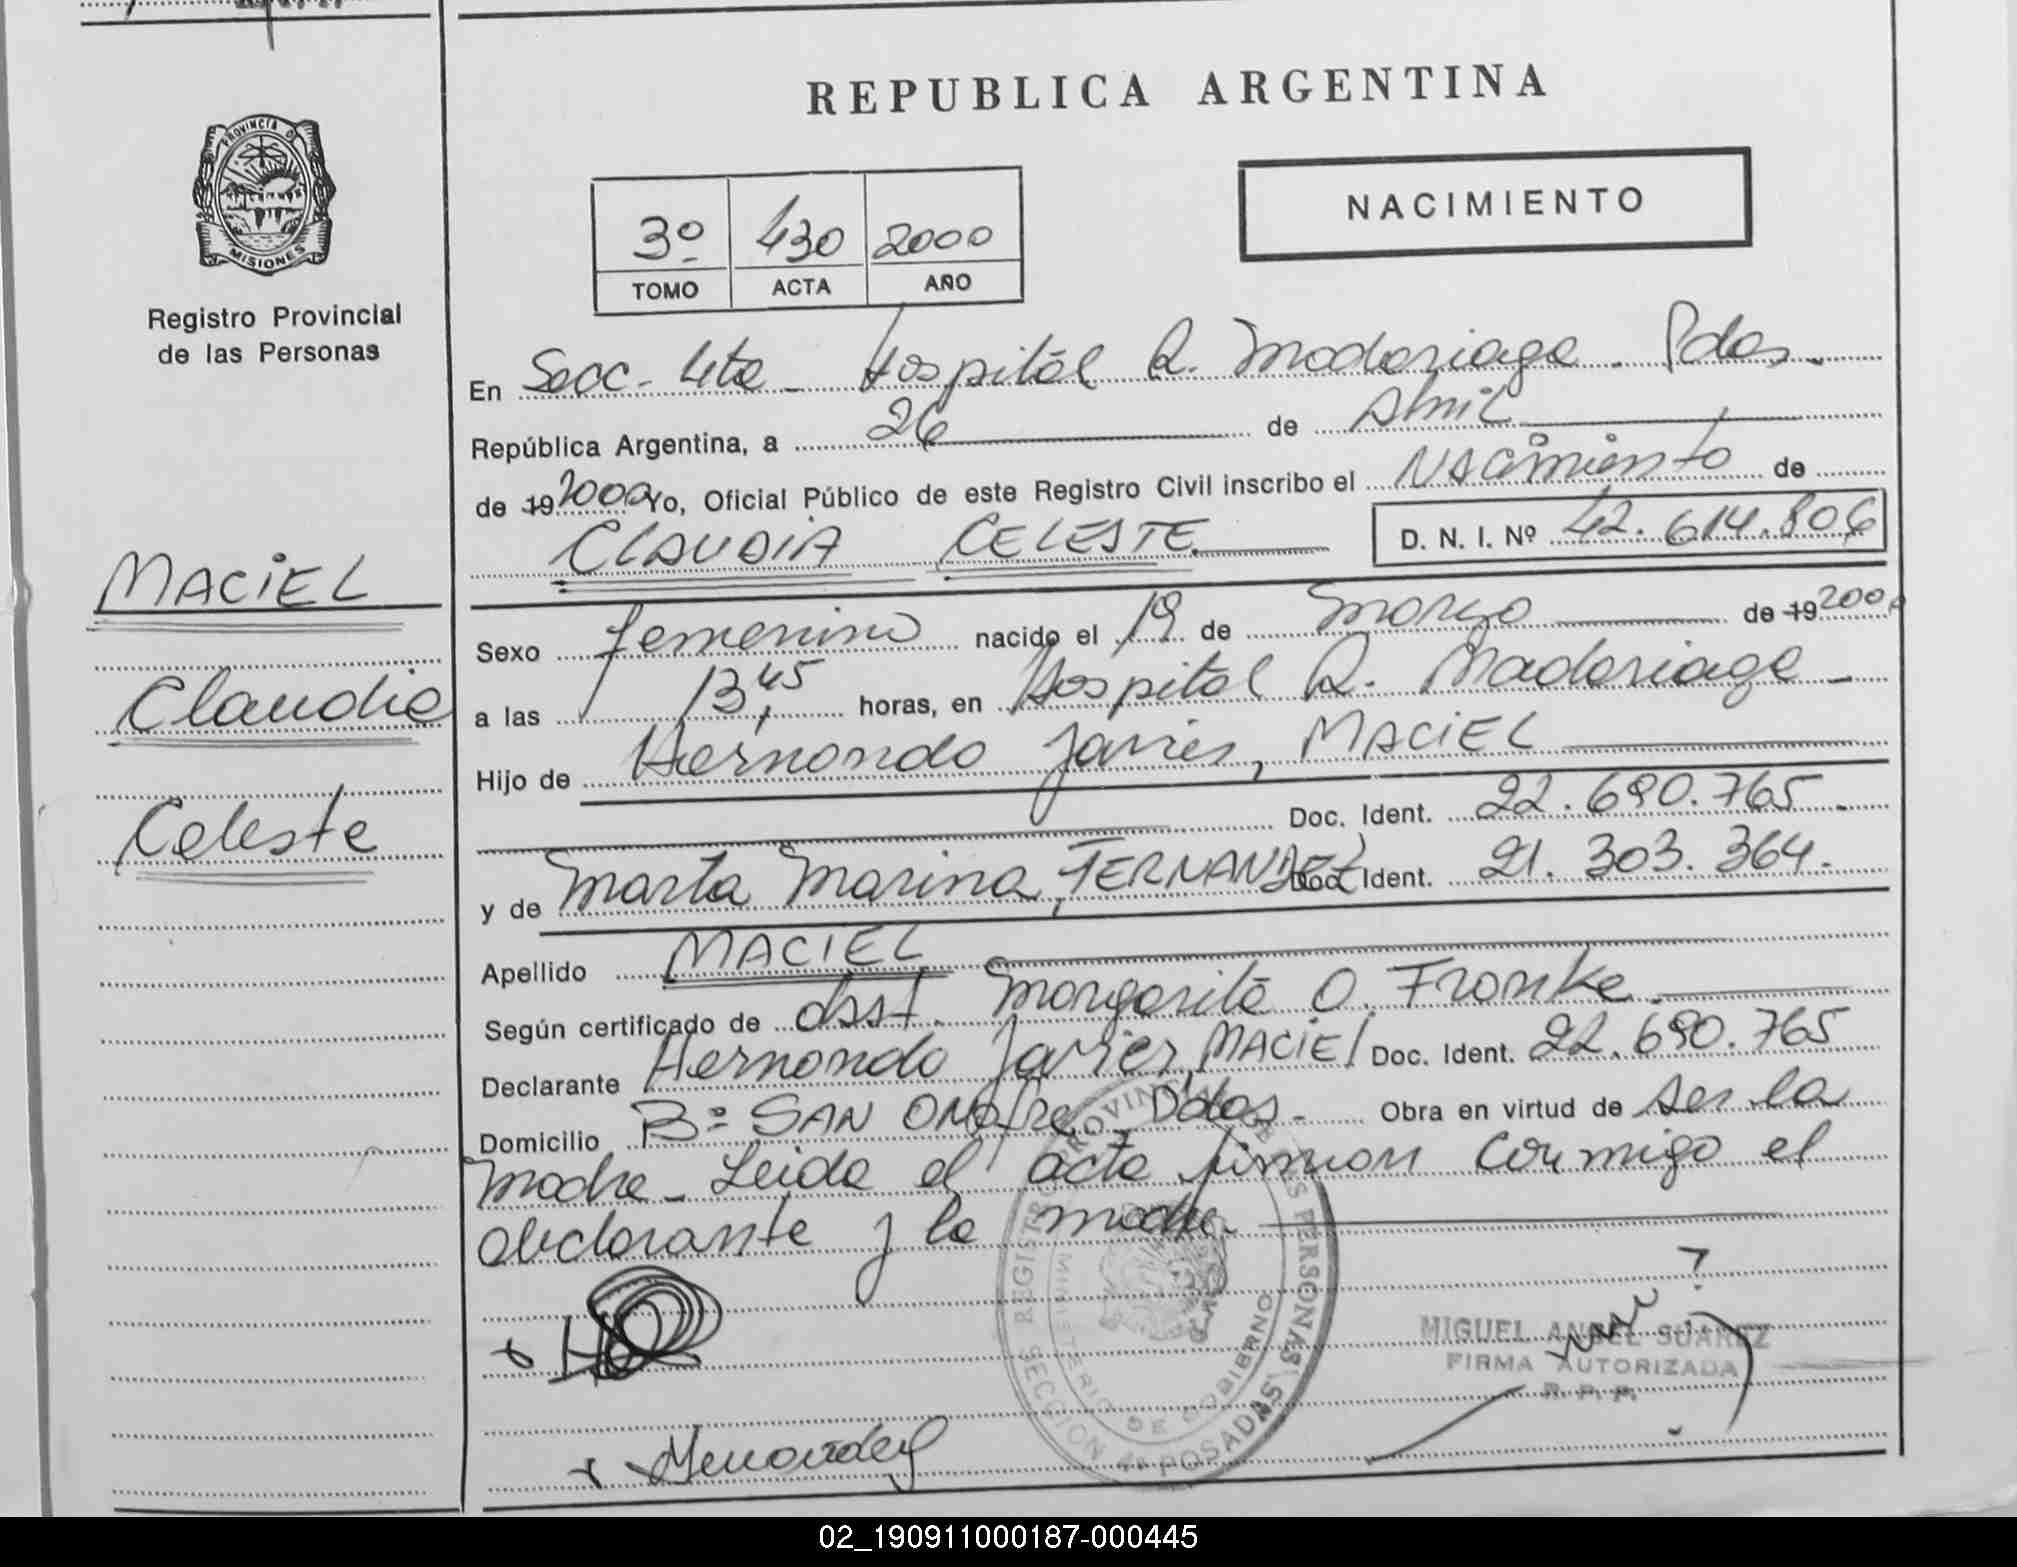 REPUBLICA ARGENTINA
PROVINCIA DE
MISIONES
Registro Provincial
de las Personas
NACIMIENTO
3º 430 2000
TOMO ACTA AÑO
En Secc. 4ta - Hospital R. Madariaga. Pdas.
República Argentina, a 26 de Abril
de 19 2000 Yo, Oficial Público de este Registro Civil inscribo el Nacimiento de
CLAUDIA CELESTE D. N. I. Nº 42.614.806
MACIEL
Claudia
Celeste
Sexo femenino nacido el 19 de Marzo de 19 2000
a las 13,45 horas, en Hospital R. Madariaga -
Hijo de Hernando Javier, MACIEL
Doc. Ident. 22.690.765.-
y de Marta Marina, FERNANDEZ Doc. Ident. 21.303.364.-
Apellido MACIEL
Según certificado de Asst. Margarita O. Franke.
Declarante Hernando Javier, MACIEL Doc. Ident. 22.690.765
Domicilio Bº SAN ONOfre Pdas. Obra en virtud de ser la
madre - Leida el acta firman conmigo el
declarante y la madre.
REGISTRO PROVINCIAL DE LAS PERSONAS
MINISTERIO DE GOBIERNO
SECCION 4ª POSADAS
MIGUEL ANGEL SUAREZ
FIRMA AUTORIZADA
R. P. P.
02_190911000187-000445